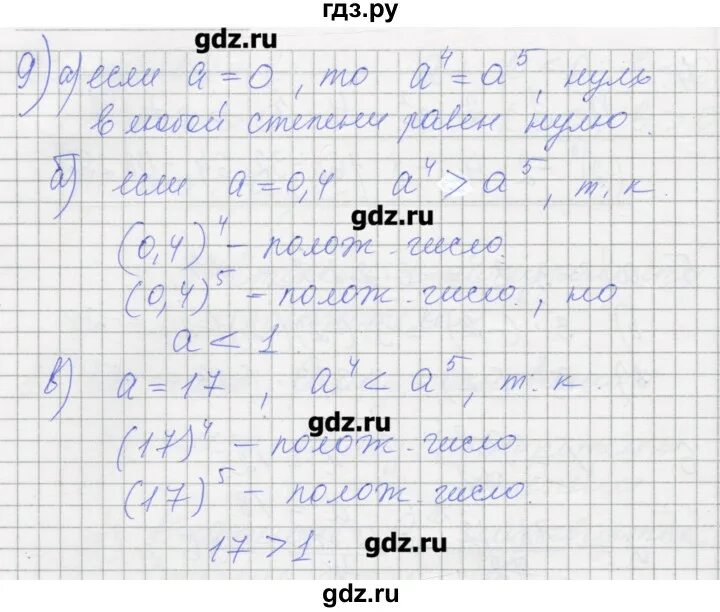 гдз.ру
gdz.ru
9) а) если a = 0, то a⁴ = a⁵, нуль
в любой степени равен нулю.
б) если a = 0,4 a⁴ > a⁵, т. к.
gdz.ru
(0,4)⁴ – полож. число.
(0,4)⁵ – полож. число, но
a < 1
в) a = 17, a⁴ < a⁵, т. к.
gdz.ru
(17)⁴ – полож. число
(17)⁵ – полож. число.
17 > 1
gdz.ru
gdz.ru